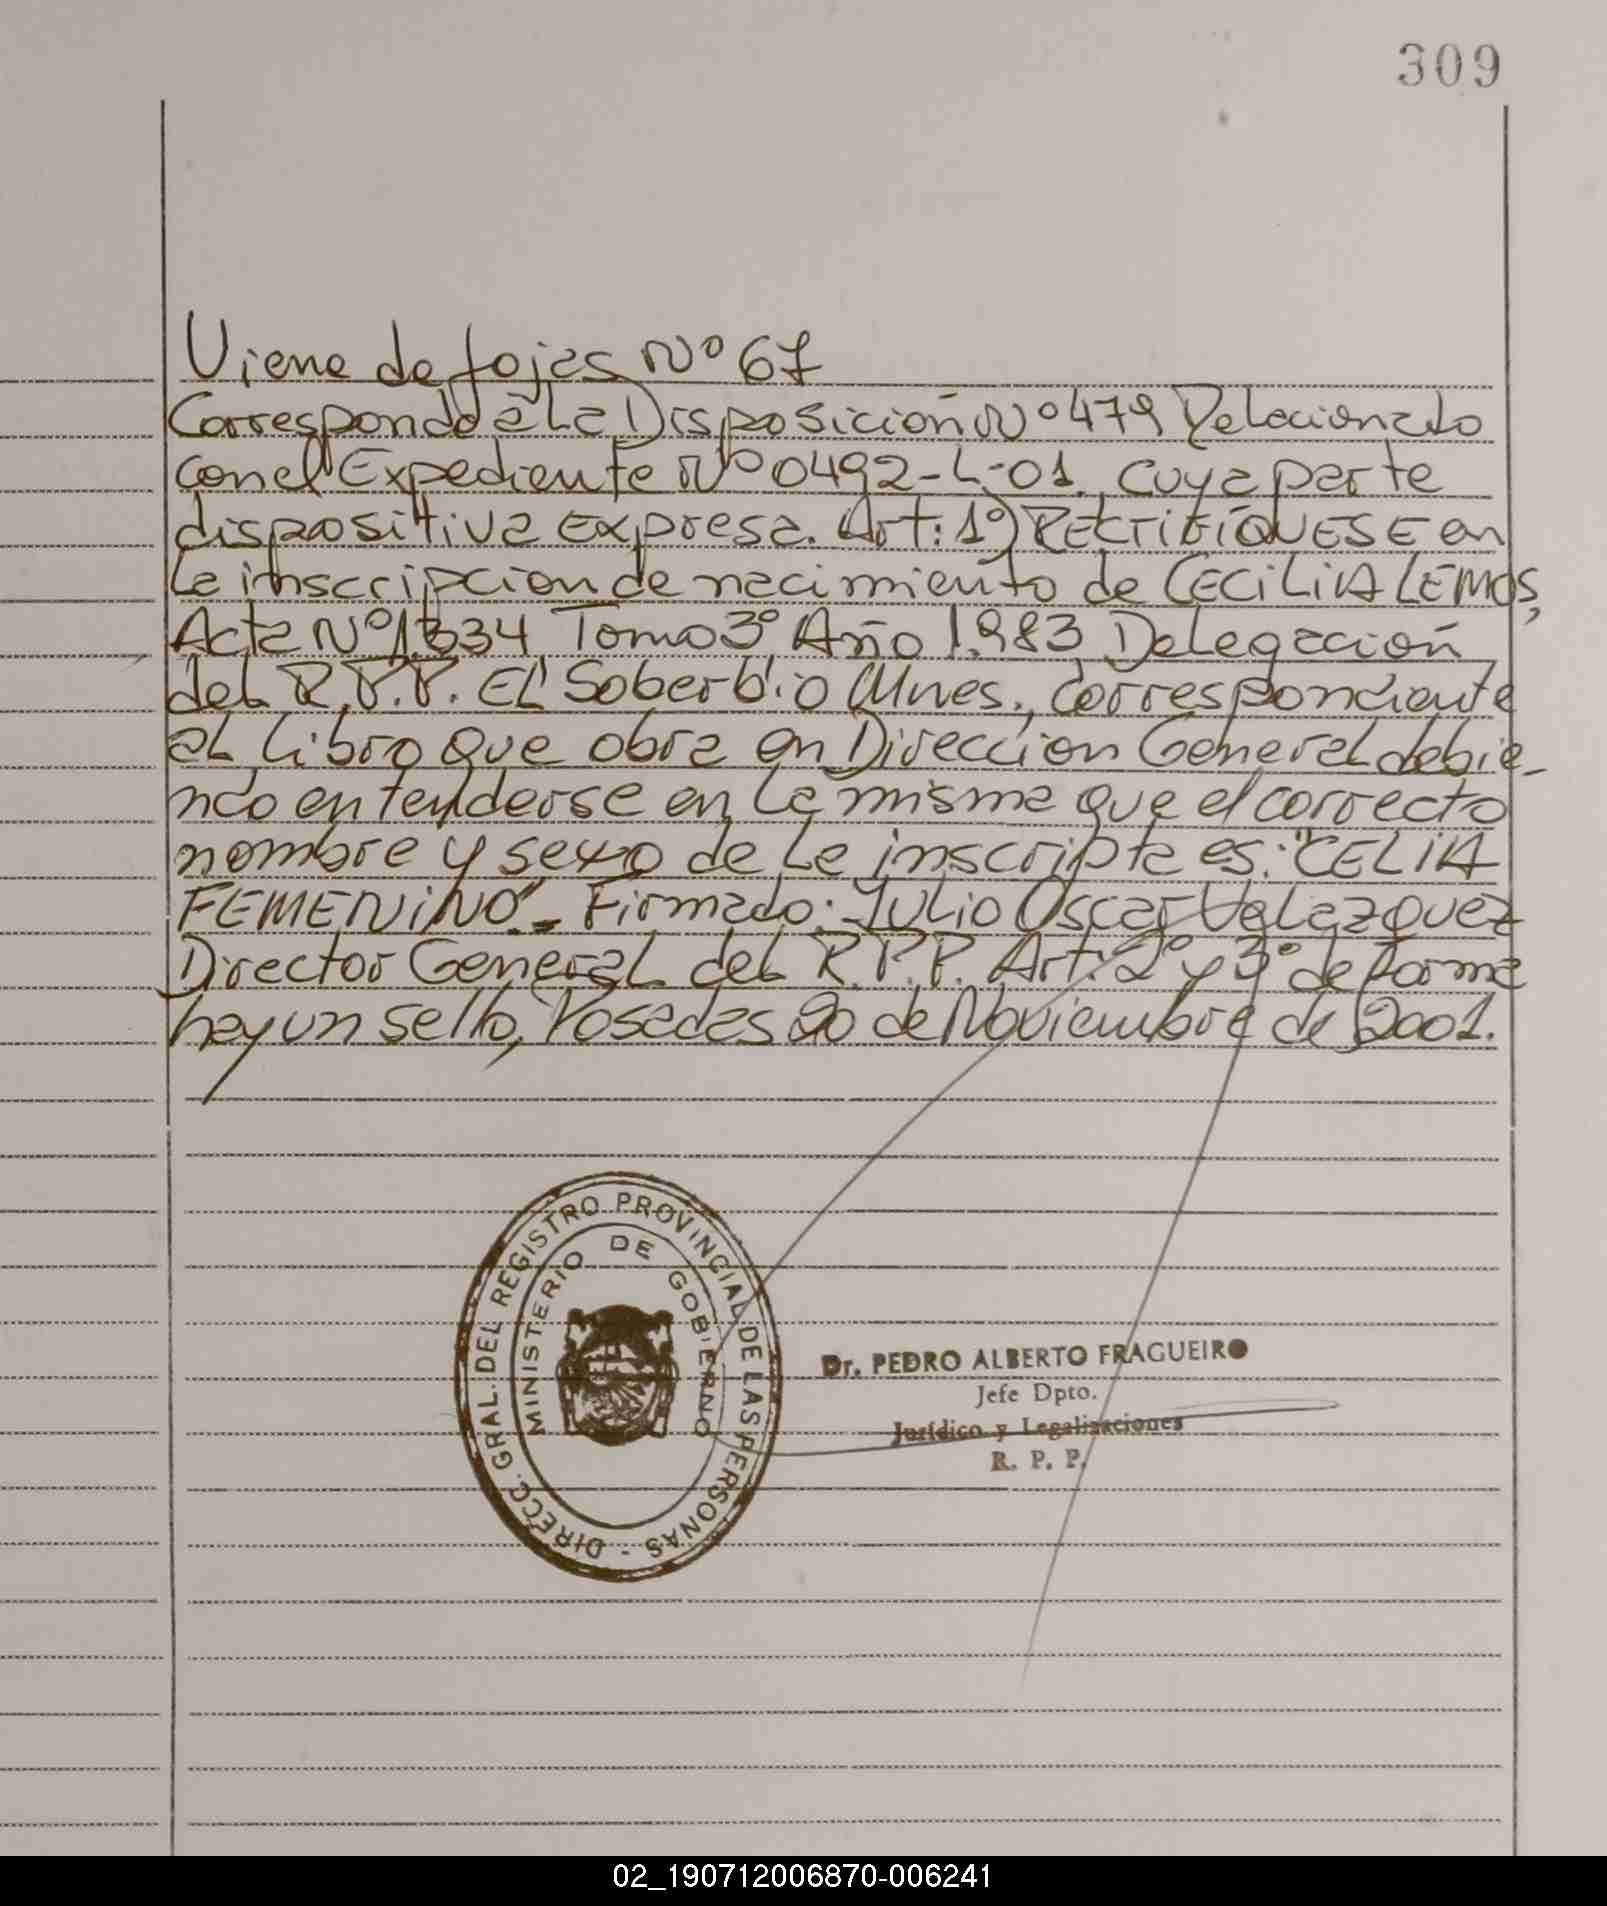 309
Viene de fojas Nº 67
Corresponde a La Disposición Nº 479 Relacionado
con el Expediente Nº 0492-L-01. cuya parte
dispositiva expresa. Art: 1º) RECTIFÍQUESE en
la inscripcion de nacimiento de CECILIA LEMOS,
Acta Nº 1.334 Tomo 3º Año 1.983, Delegación
del R.P.P. El Soberbio Mnes., correspondiente
al Libro que obra en Dirección General debie-
ndo entenderse en la misma que el correcto
nombre y sexo de la inscripta es: "CELIA
FEMENINO".- Firmado: Julio Oscar Velazquez
Director General del R.P.P. Art: 2º y 3º de forma
hay un sello, Posadas 20 de Noviembre de 2001.
DIRECC. GRAL. DEL REGISTRO PROVINCIAL DE LAS PERSONAS -
MINISTERIO DE GOBIERNO
Dr. PEDRO ALBERTO FRAGUEIRO
Jefe Dpto.
Jurídico y Legalizaciones
R. P. P.
02_190712006870-006241